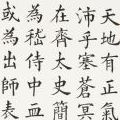 天地有正氣
沛乎塞蒼冥
在齊太史簡
為嵇侍中血
或為出師表